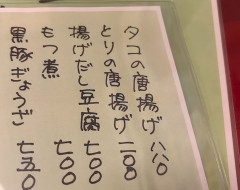 タコの唐揚げ 八八〇
とりの唐揚げ 一二〇〇
揚げだし豆腐 七〇〇
もつ煮 七〇〇
黒豚ぎょうざ 七五〇